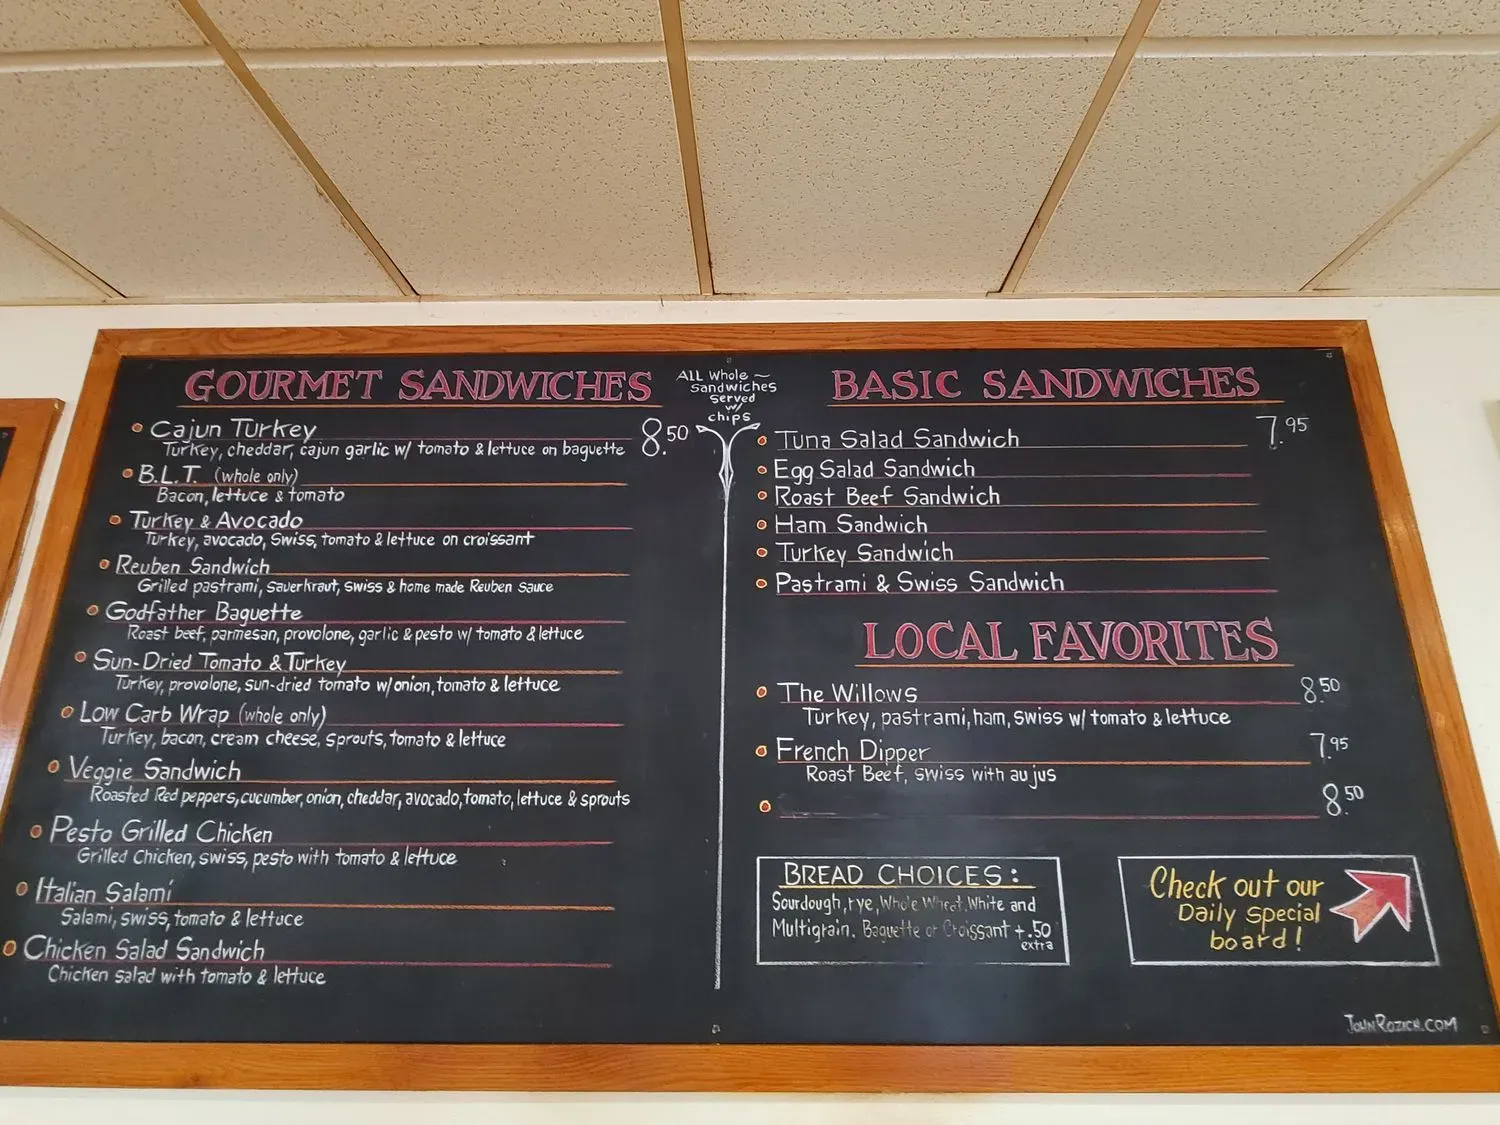 GOURMET SANDWICHES
Cajun Turkey 8.50
Turkey, cheddar, cajun garlic w/ tomato & lettuce on baguette
B.L.T. (whole only)
Bacon, lettuce & tomato
Turkey & Avocado
Turkey, avocado, Swiss, tomato & lettuce on croissant
Reuben Sandwich
Grilled pastrami, sauerkraut, swiss & home made Reuben Sauce
Godfather Baguette
Roast beef, parmesan, provolone, garlic & pesto w/ tomato & lettuce
Sun-Dried Tomato & Turkey
Turkey, provolone, sun-dried tomato w/onion, tomato & lettuce
Low Carb Wrap (whole only)
Turkey, bacon, cream cheese, sprouts, tomato & lettuce
Veggie Sandwich
Roasted Red peppers, cucumber, onion, cheddar, avocado, tomato, lettuce & sprouts
Pesto Grilled Chicken
Grilled Chicken, swiss, pesto with tomato & lettuce
Italian Salami
Salami, swiss, tomato & lettuce
Chicken Salad Sandwich
Chicken salad with tomato & lettuce
ALL Whole ~
Sandwiches
Served
w/
chips
BASIC SANDWICHES
7.95
Tuna Salad Sandwich
Egg Salad Sandwich
Roast Beef Sandwich
Ham Sandwich
Turkey Sandwich
Pastrami & Swiss Sandwich
LOCAL FAVORITES
The Willows 8.50
Turkey, pastrami, ham, swiss w/ tomato & lettuce
French Dipper 7.95
Roast Beef, swiss with au jus
8.50
BREAD CHOICES:
Sourdough, rye, Whole Wheat, White and
Multigrain. Baguette or Croissant +.50
extra
Check out our
Daily Special
board!
JOHNROZICH.COM